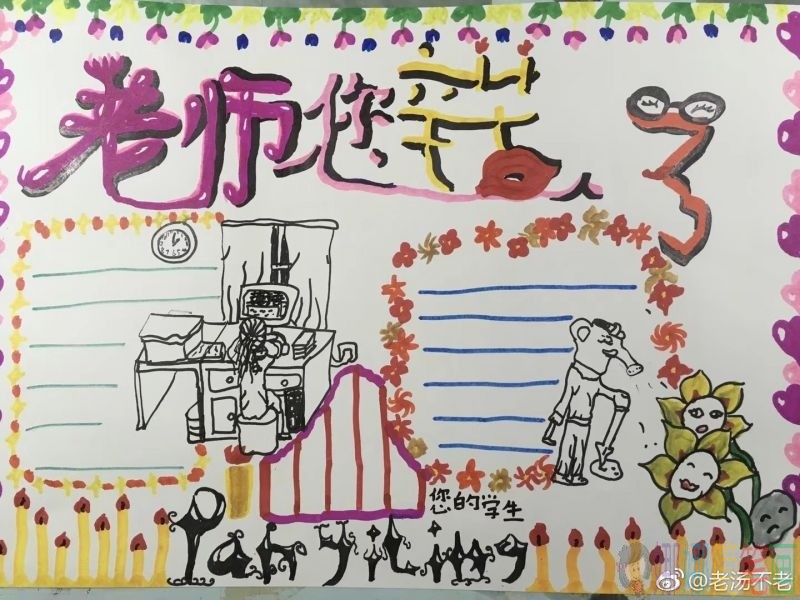 老师您辛苦了
您的学生
@老汤不老